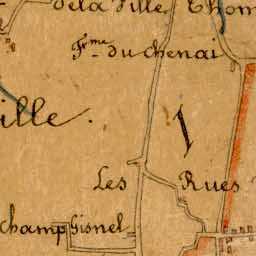 de la Ville Thom
Fme du chenai
ille.
Les Rues
champ Gisnel